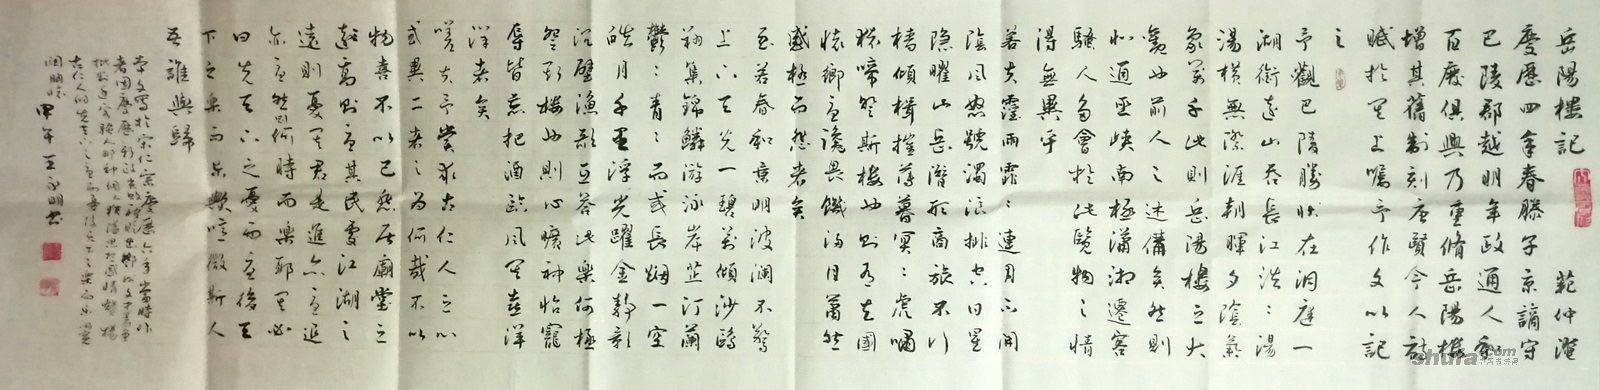 岳陽樓記　范仲淹
慶歷四年春滕子京謫守
巴陵郡越明年政通人和
百廢俱興乃重修岳陽樓
增其舊制刻唐賢今人詩
賦於其上囑予作文以記
之
予觀巴陵勝狀在洞庭一
湖銜遠山吞長江浩浩湯
湯橫無際涯朝暉夕陰氣
象萬千此則岳陽樓之大
觀也前人之述備矣然則
北通巫峽南極瀟湘遷客
騷人多會於此覽物之情
得無異乎
若夫霪雨霏霏連月不開
陰風怒號濁浪排空日星
隱曜山岳潛形商旅不行
檣傾楫摧薄暮冥冥虎嘯
猿啼登斯樓也則有去國
懷鄉憂讒畏譏滿目蕭然
感極而悲者矣
至若春和景明波瀾不驚
上下天光一碧萬頃沙鷗
翔集錦鱗游泳岸芷汀蘭
鬱鬱青青而或長煙一空
皓月千里浮光躍金靜影
沉璧漁歌互答此樂何極
登斯樓也則心曠神怡寵
辱皆忘把酒臨風其喜洋
洋者矣
嗟夫予嘗求古仁人之心
或異二者之為何哉不以
物喜不以己悲居廟堂之
高則憂其民處江湖之
遠則憂其君是進亦憂退
亦憂然則何時而樂耶其必
曰先天下之憂而憂後天
下之樂而樂歟噫微斯人
吾誰與歸
甲午 王永明書
shufa.com